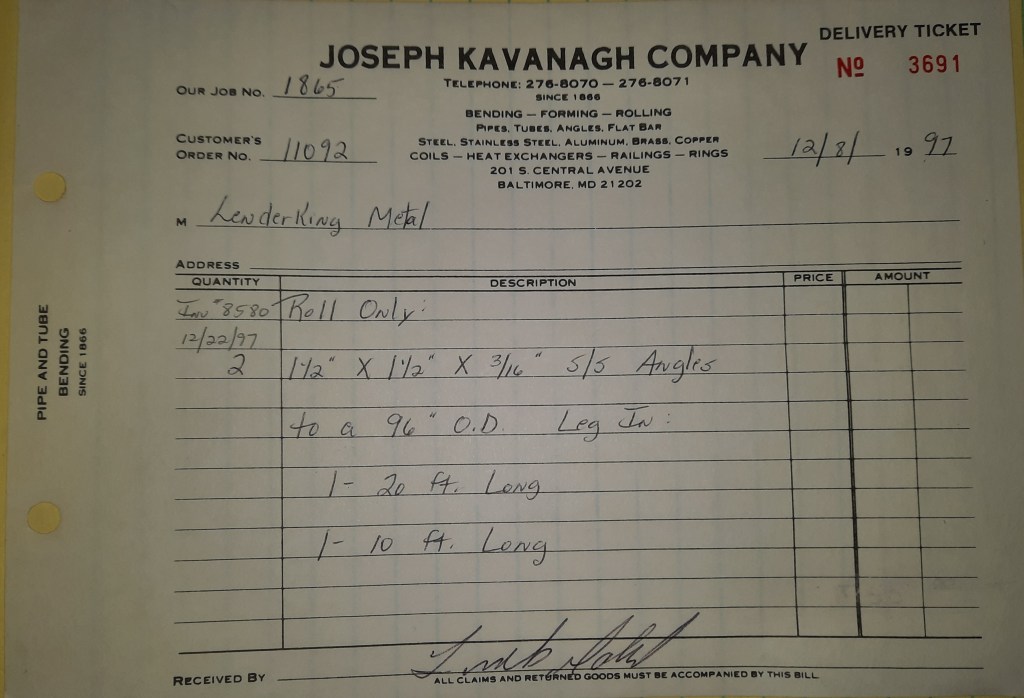 DELIVERY TICKET
JOSEPH KAVANAGH COMPANY
Nº 3691
OUR JOB NO. 1865
TELEPHONE: 276-8070 — 276-8071
SINCE 1866
BENDING — FORMING — ROLLING
PIPES, TUBES, ANGLES, FLAT BAR
CUSTOMER'S
ORDER NO. 11092
STEEL, STAINLESS STEEL, ALUMINUM, BRASS, COPPER
COILS — HEAT EXCHANGERS — RAILINGS — RINGS
12/8/ 19 97
201 S. CENTRAL AVENUE
BALTIMORE, MD 21202
M LenderKing Metal
ADDRESS
QUANTITY DESCRIPTION PRICE AMOUNT
Inv #8580 Roll Only:
12/22/97
2 1 1/2" X 1 1/2" X 3/16" S/S Angles
to a 96" O.D. Leg In:
1- 20 ft. Long
1- 10 ft. Long
PIPE AND TUBE
BENDING
SINCE 1866
RECEIVED BY
ALL CLAIMS AND RETURNED GOODS MUST BE ACCOMPANIED BY THIS BILL